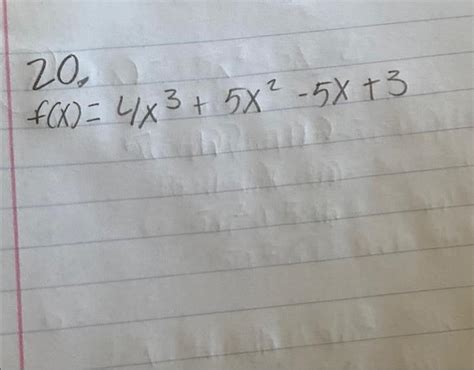 20.
f(x) = 4x³ + 5x² - 5x + 3